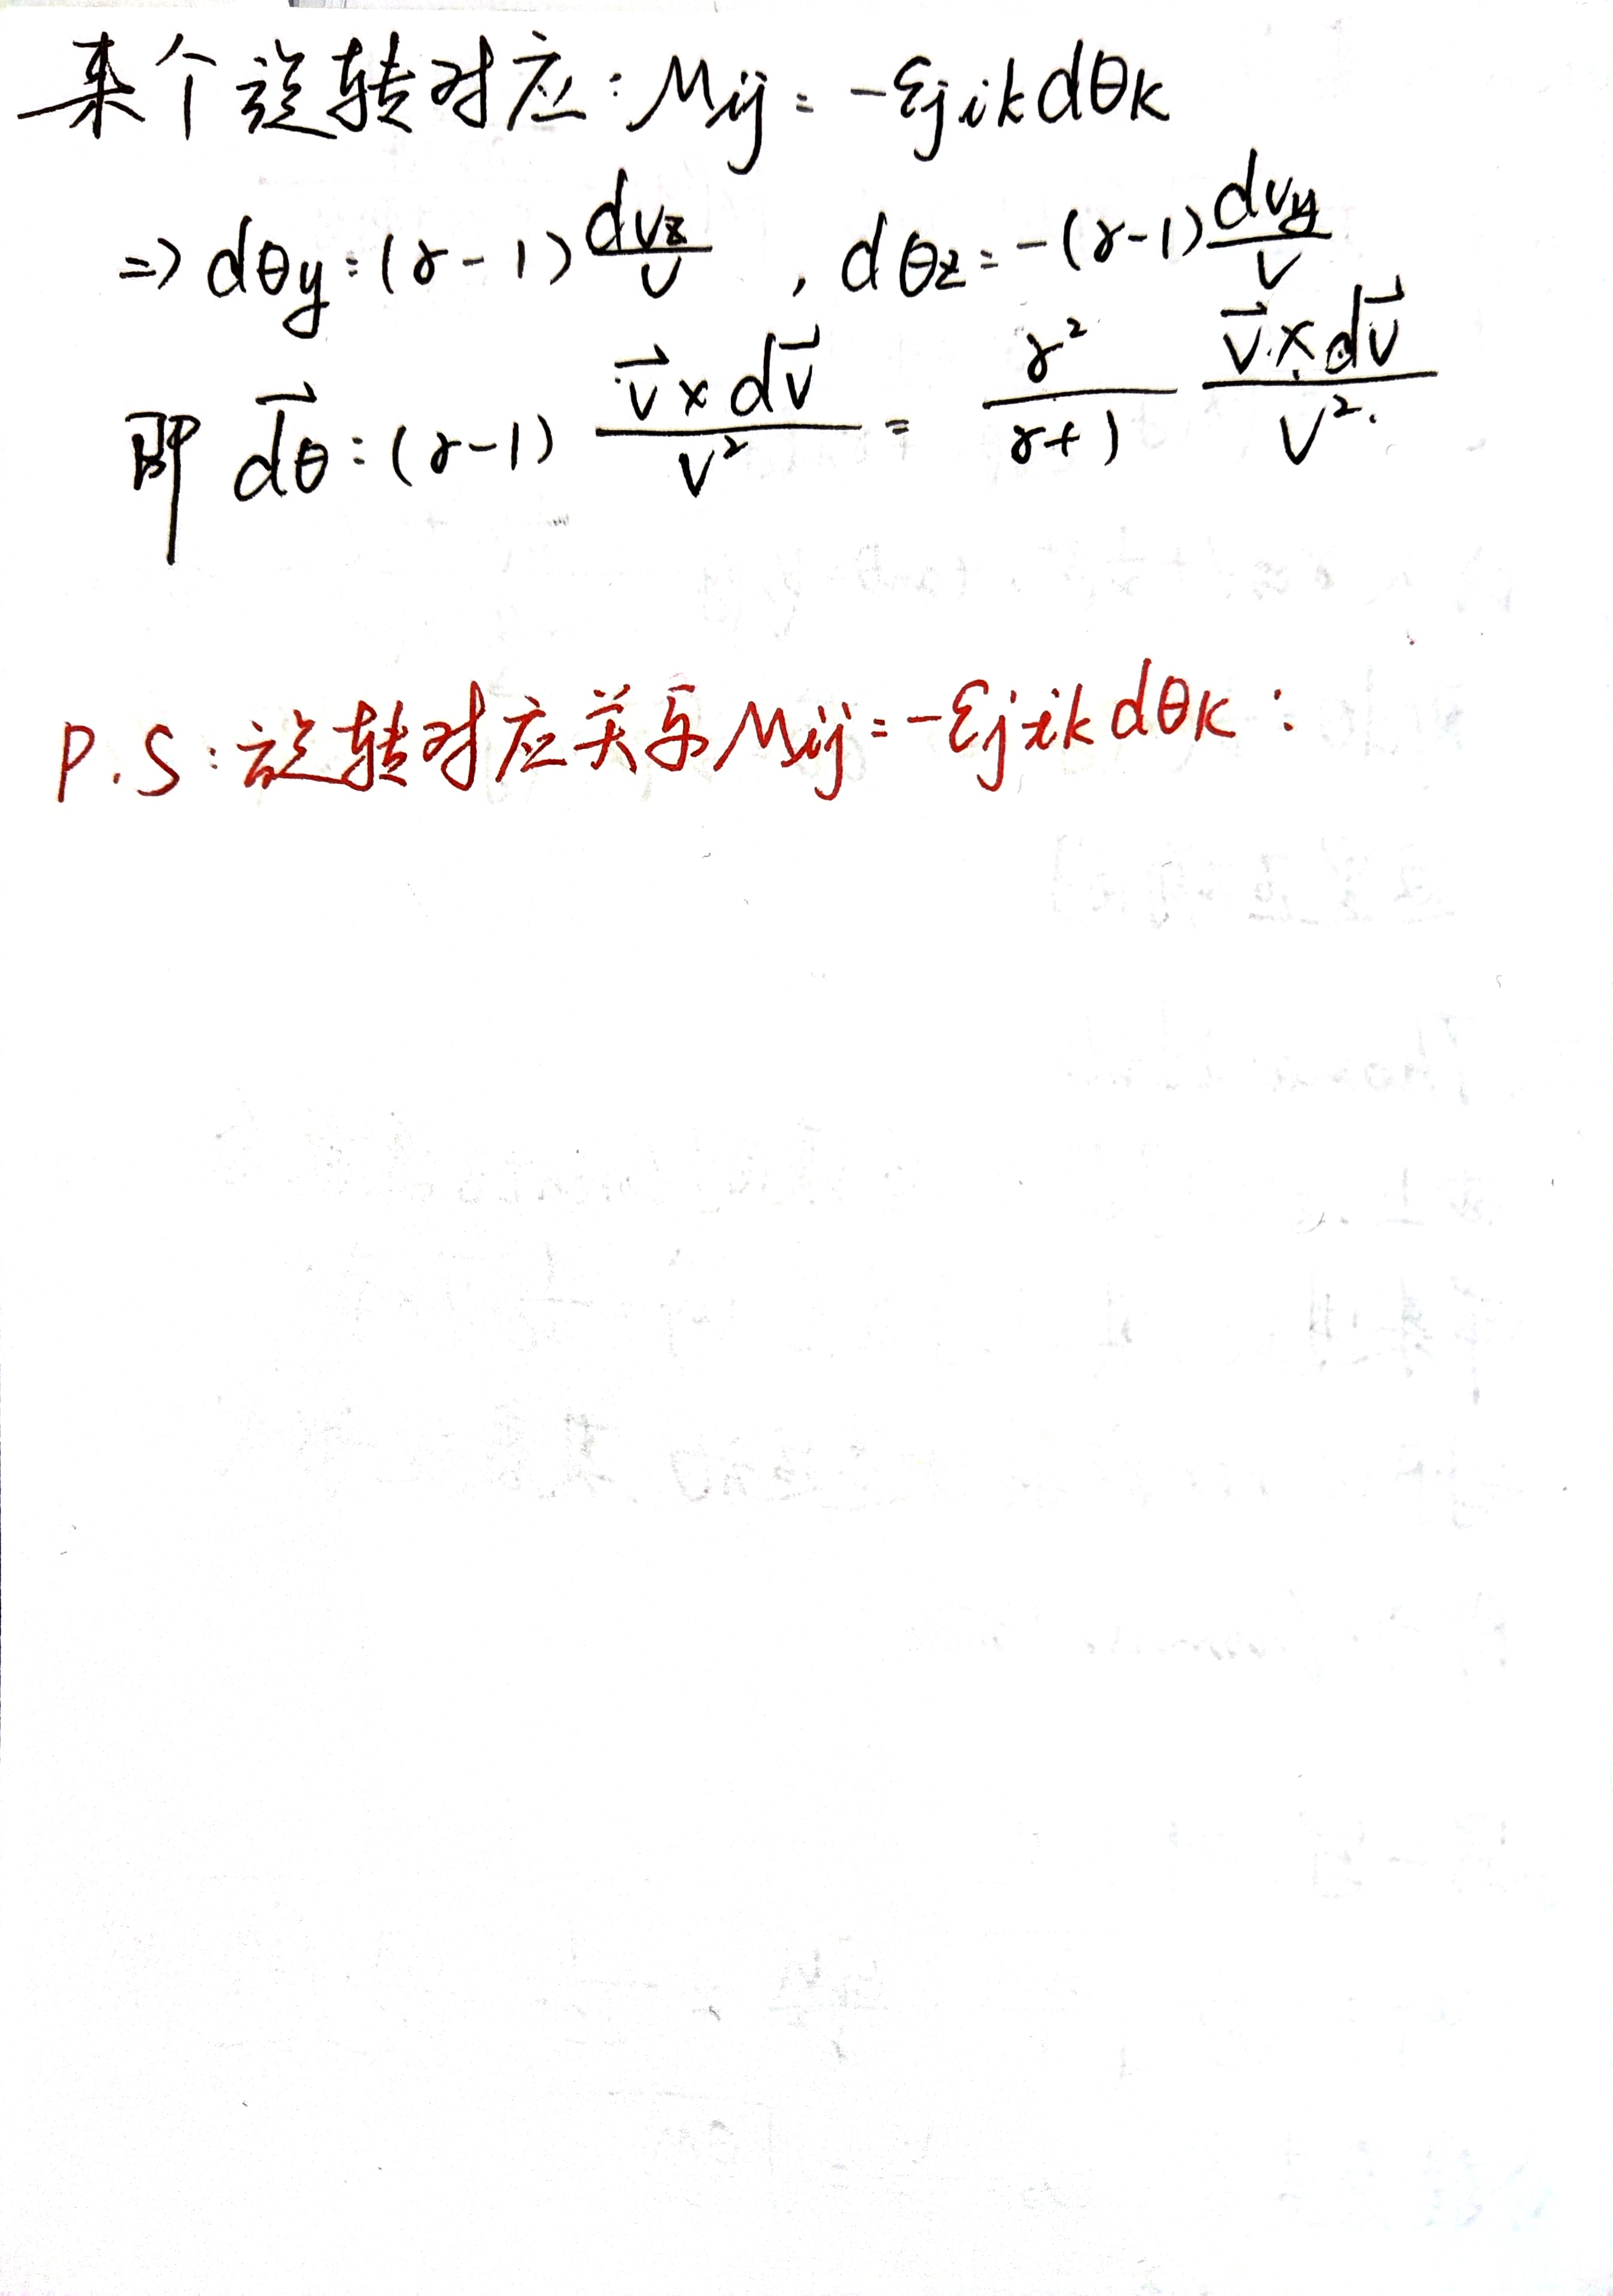 来个旋转对应:Mij = -εjik dθk
=> dθy = (γ-1) dvz/v , dθz = -(γ-1) dvy/v
即 d⃗θ = (γ-1) v⃗×dv⃗/v² = γ²/(γ+1) v⃗×dv⃗/v².
P.S:旋转对应关系 Mij = -εjik dθk :